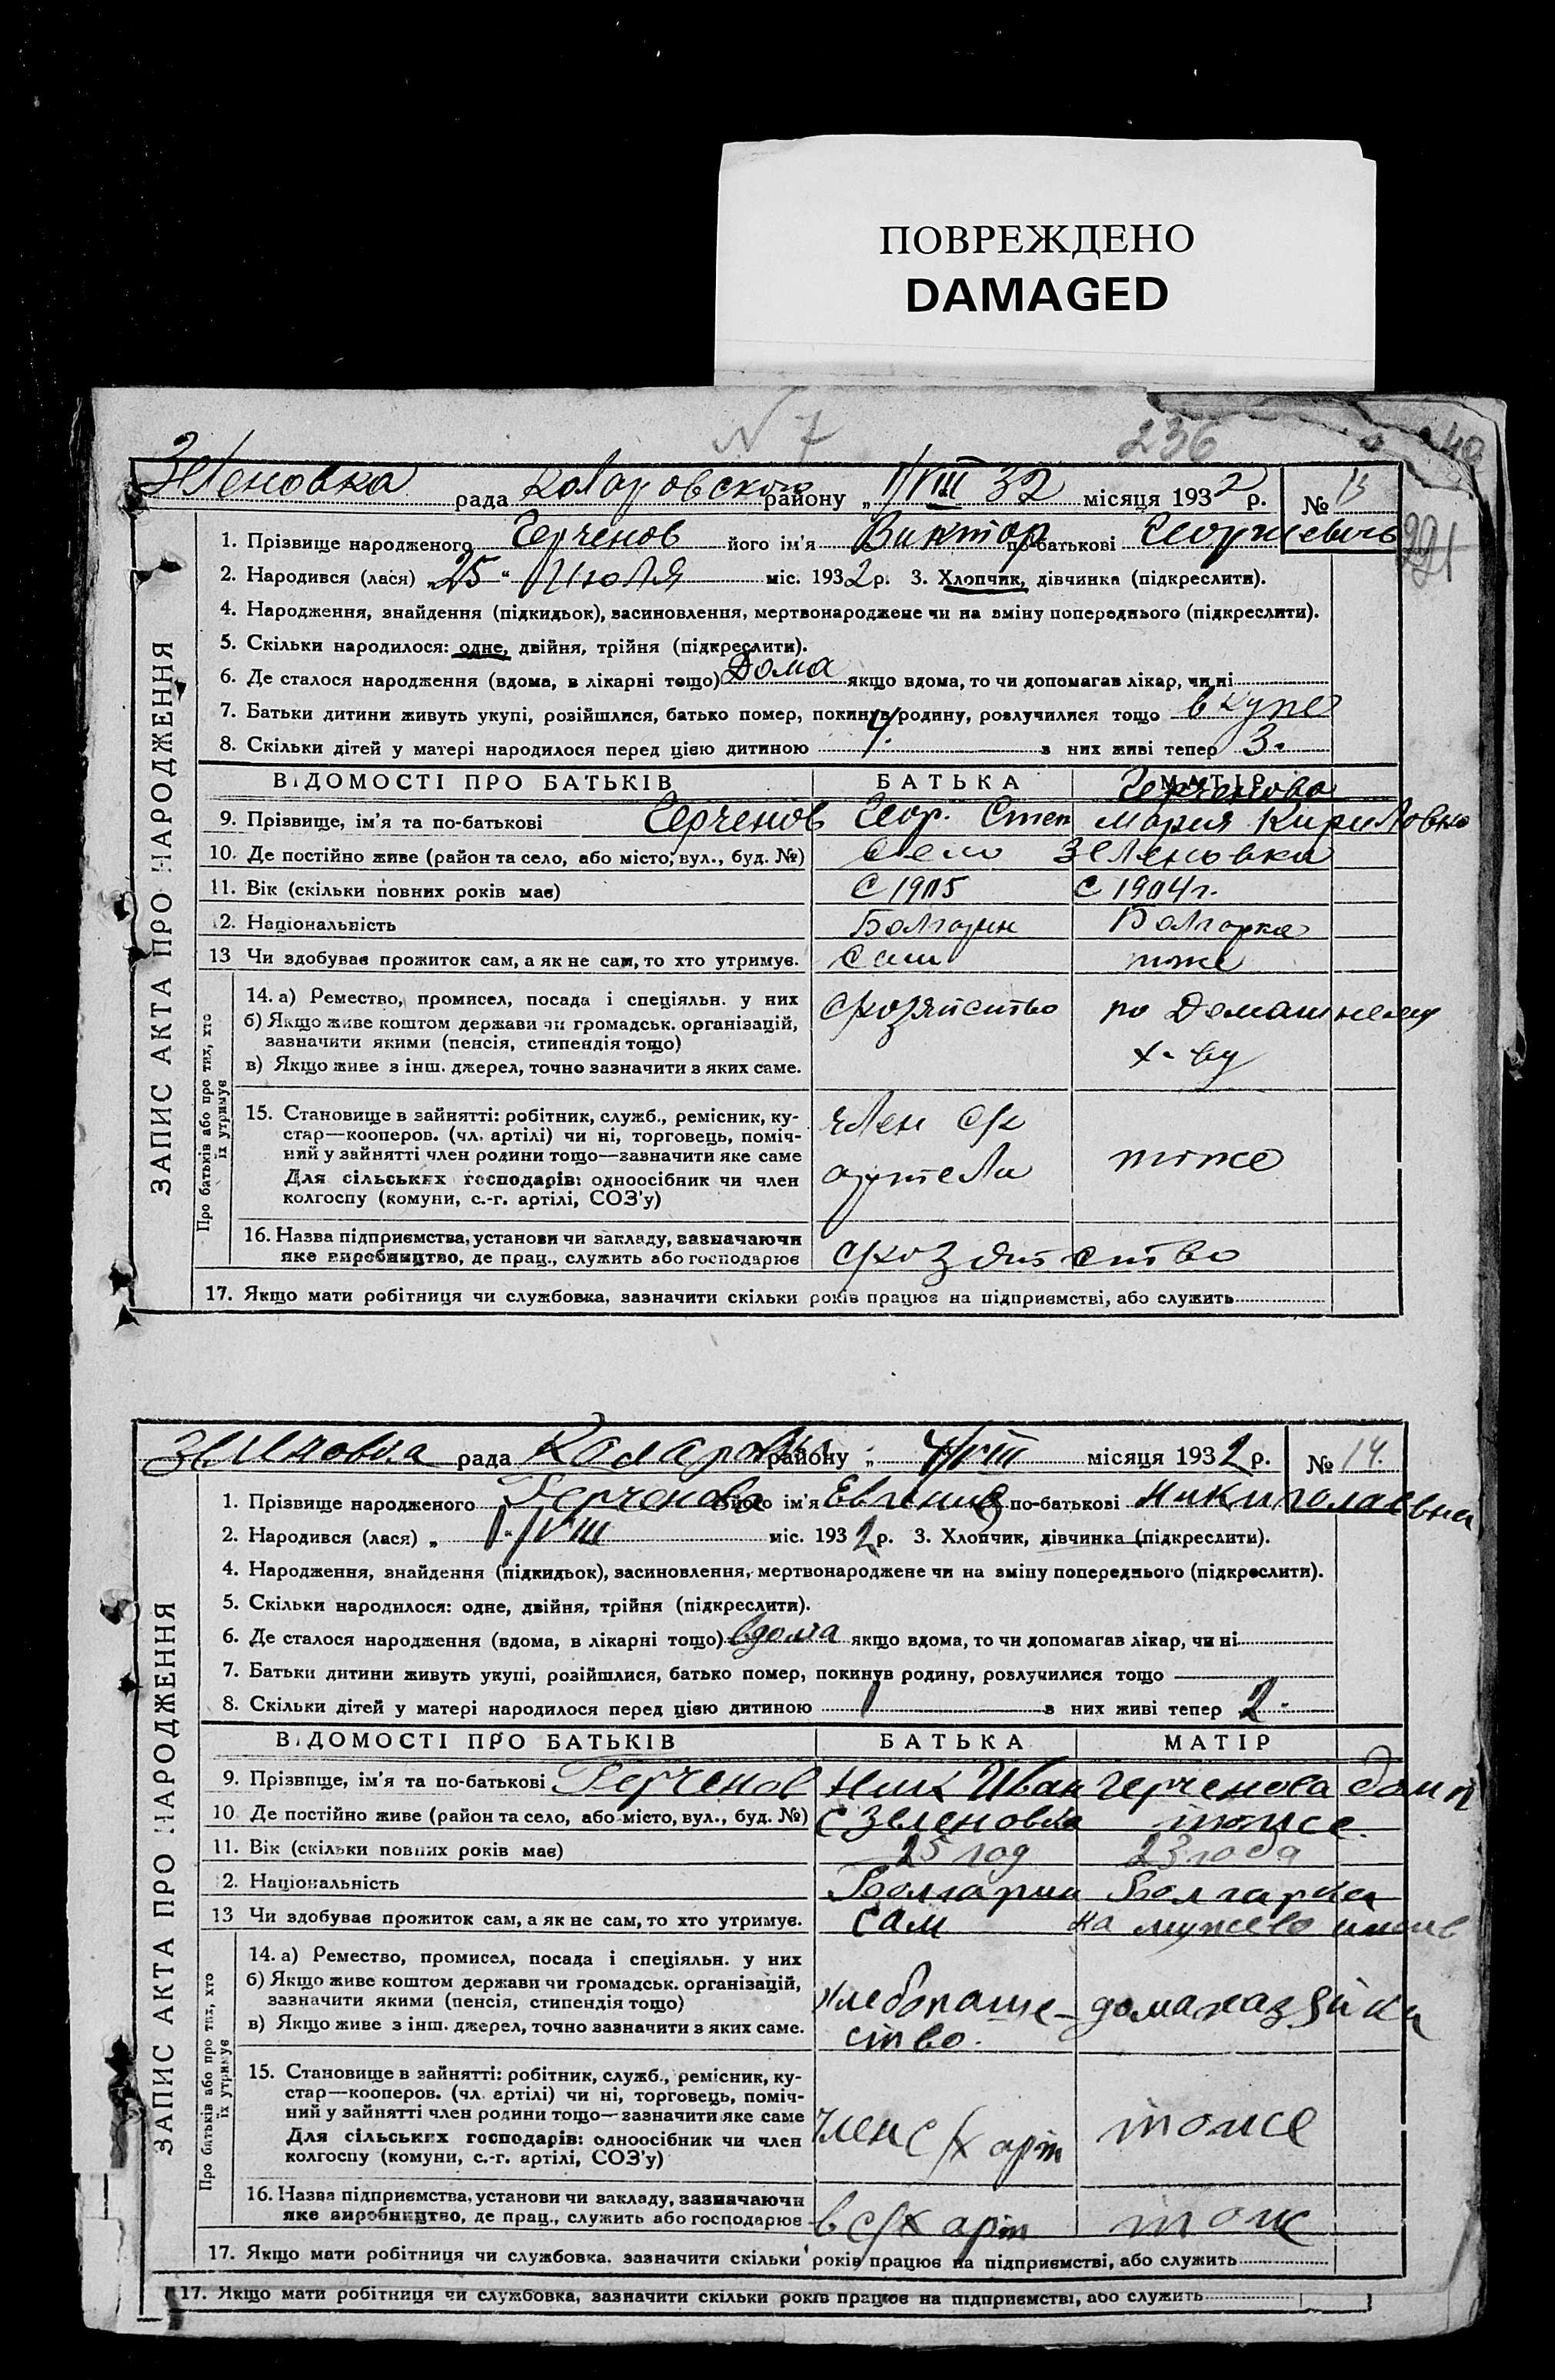 ПОВРЕЖДЕНО
DAMAGED
N 7
236
40
Зеленовка рада Коларовского району „ 1/VIII 32 місяця 1932 р. № 13
221
1. Прізвище народженого Герченов його ім'я Виктор по-батькові Георгиевичь
2. Народився (лася) „25“ Июля міс. 1932 р. 3. Хлопчик, дівчинка (підкреслити).
4. Народження, знайдення (підкидьок), засиновлення, мертвонароджене чи на зміну попереднього (підкреслити).
5. Скільки народилося: одне, двійня, трійня (підкреслити).
6. Де сталося народження (вдома, в лікарні тощо) Дома якщо вдома, то чи допомагав лікар, чи ні
7. Батьки дитини живуть укупі, розійшлися, батько помер, покинув родину, розлучилися тощо вкупе
8. Скільки дітей у матері народилося перед цією дитиною 4. з них живі тепер 3.
ВІДОМОСТІ ПРО БАТЬКІВ БАТЬКА МАТІР
Герченова
9. Прізвище, ім'я та по-батькові Герченов Геор. Степ Мария Кириловно
10. Де постійно живе (район та село, або місто, вул., буд. №) Село Зеленовка
11. Вік (скільки повних років має) С 1905 С 1904 г.
12. Національність Болгарин Болгарка
13 Чи здобував прожиток сам, а як не сам, то хто утримує. Сам тоже
ЗАПИС АКТА ПРО НАРОДЖЕННЯ
Про батьків або про тих, хто їх утримує
14. а) Ремество, промисел, посада і спеціяльн. у них с/хозяйство по Домашнему
б) Якщо живе коштом держави чи громадськ. організацій,
зазначити якими (пенсія, стипендія тощо) х-ву
в) Якщо живе з інш. джерел, точно зазначити з яких саме.
15. Становище в зайнятті: робітник, служб., ремісник, ку- член с/х
стар—кооперов. (чл. артілі) чи ні, торговець, поміч-
ний у зайнятті член родини тощо—зазначити яке саме артели тоже
Для сільських господарів: одноосібник чи член
колгоспу (комуни, с.-г. артілі, СОЗ'у)
16. Назва підприємства, установи чи закладу, зазначаючи
яке виробництво, де прац., служить або господарює с/хозяйство
17. Якщо мати робітниця чи службовка, зазначити скільки років працює на підприємстві, або служить
Зеленовка рада Коларовск району „ 4/VIII місяця 1932 р. № 14.
1. Прізвище народженого Герченова його ім'я Евгения по-батькові Никиголаевна
2. Народився (лася) „ 1/VIII міс. 1932 р. 3. Хлопчик, дівчинка (підкреслити).
4. Народження, знайдення (підкидьок), засиновлення, мертвонароджене чи на зміну попереднього (підкреслити).
5. Скільки народилося: одне, двійня, трійня (підкреслити).
6. Де сталося народження (вдома, в лікарні тощо) вдома якщо вдома, то чи допомагав лікар, чи ні
7. Батьки дитини живуть укупі, розійшлися, батько помер, покинув родину, розлучилися тощо
8. Скільки дітей у матері народилося перед цією дитиною 1 з них живі тепер 2.
ВІДОМОСТІ ПРО БАТЬКІВ БАТЬКА МАТІР
9. Прізвище, ім'я та по-батькові Герченов Ник Иван Герченова
10. Де постійно живе (район та село, або місто, вул., буд. №) с Зеленовка тоже.
11. Вік (скільки повних років має) 25 год 23 года
12. Національність Болгарин Болгарка
13 Чи здобував прожиток сам, а як не сам, то хто утримує. сам на мужево
ЗАПИС АКТА ПРО НАРОДЖЕННЯ
Про батьків або про тих, хто їх утримує
14. а) Ремество, промисел, посада і спеціяльн. у них
б) Якщо живе коштом держави чи громадськ. організацій, хлебопаше- домахазяйка
зазначити якими (пенсія, стипендія тощо)
в) Якщо живе з інш. джерел, точно зазначити з яких саме. ство.
15. Становище в зайнятті: робітник, служб., ремісник, ку-
стар—кооперов. (чл. артілі) чи ні, торговець, поміч-
ний у зайнятті член родини тощо—зазначити яке саме член с/х арт тоже
Для сільських господарів: одноосібник чи член
колгоспу (комуни, с.-г. артілі, СОЗ'у)
16. Назва підприємства, установи чи закладу, зазначаючи
яке виробництво, де прац., служить або господарює в с/х арт тоже
17. Якщо мати робітниця чи службовка, зазначити скільки років працює на підприємстві, або служить
17. Якщо мати робітниця чи службовка, зазначити скільки років працює на підприємстві, або служить